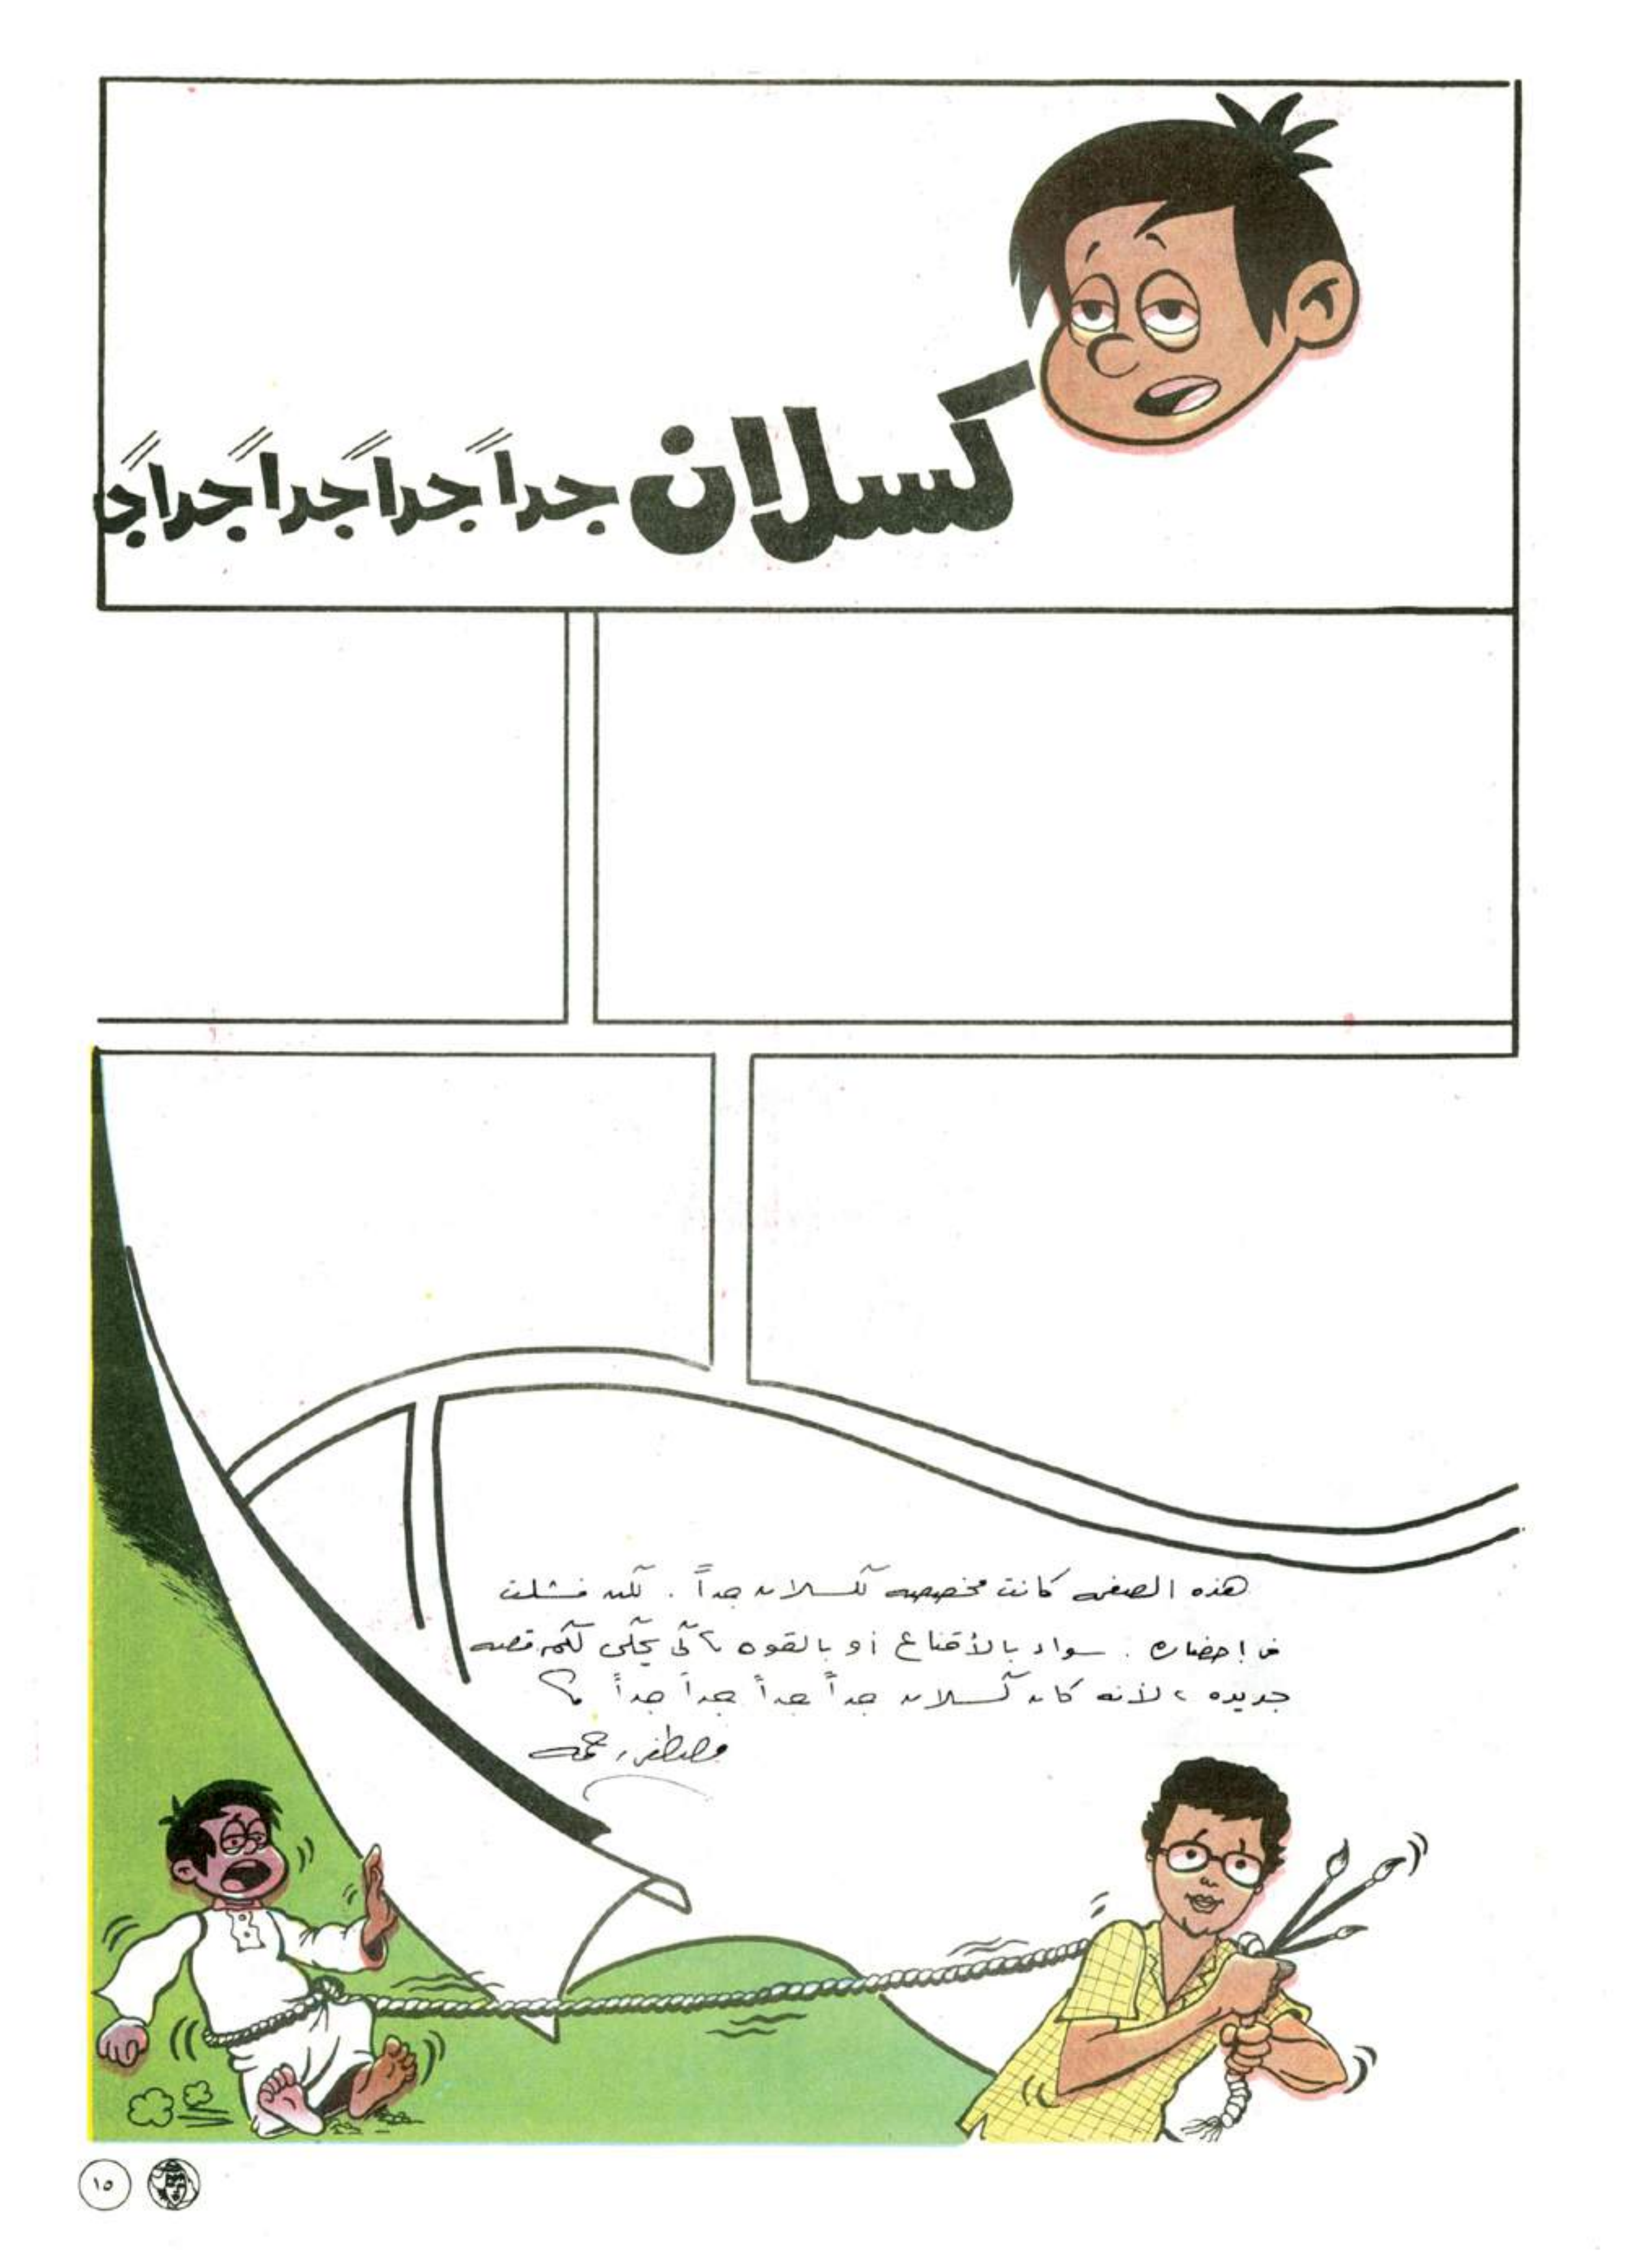 كسلان جداً جداً جداً جداً ج
هذه الصفحه كانت مخصصه لكسلان جداً . لكن فشلت
فى إحضاره . سواء بالأقناع أو بالقوه ، لكى يحكى لكم قصه
جديده ، لأنه كان كسلان جداً جداً جداً جداً ؟
مصطفى رحمه
١٥